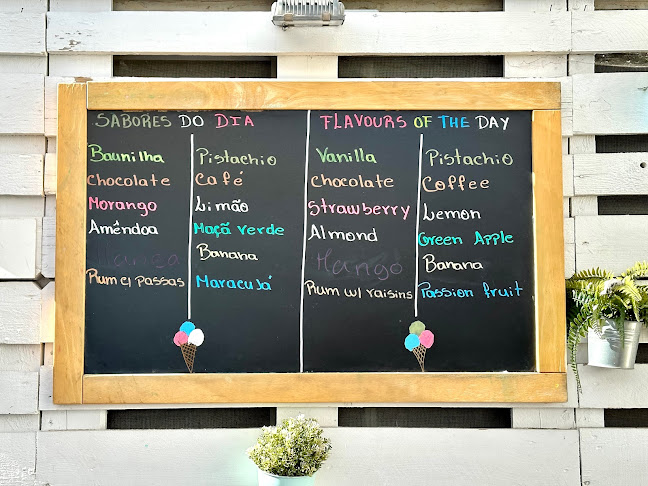 SABORES DO DIA
Baunilha
Chocolate
Morango
Amêndoa
Rum c/ passas
Pistachio
Café
Limão
Maçã verde
Banana
Maracujá
FLAVOURS OF THE DAY
Vanilla
Chocolate
Strawberry
Almond
Mango
Rum w/ raisins
Pistachio
Coffee
Lemon
Green Apple
Banana
Passion fruit